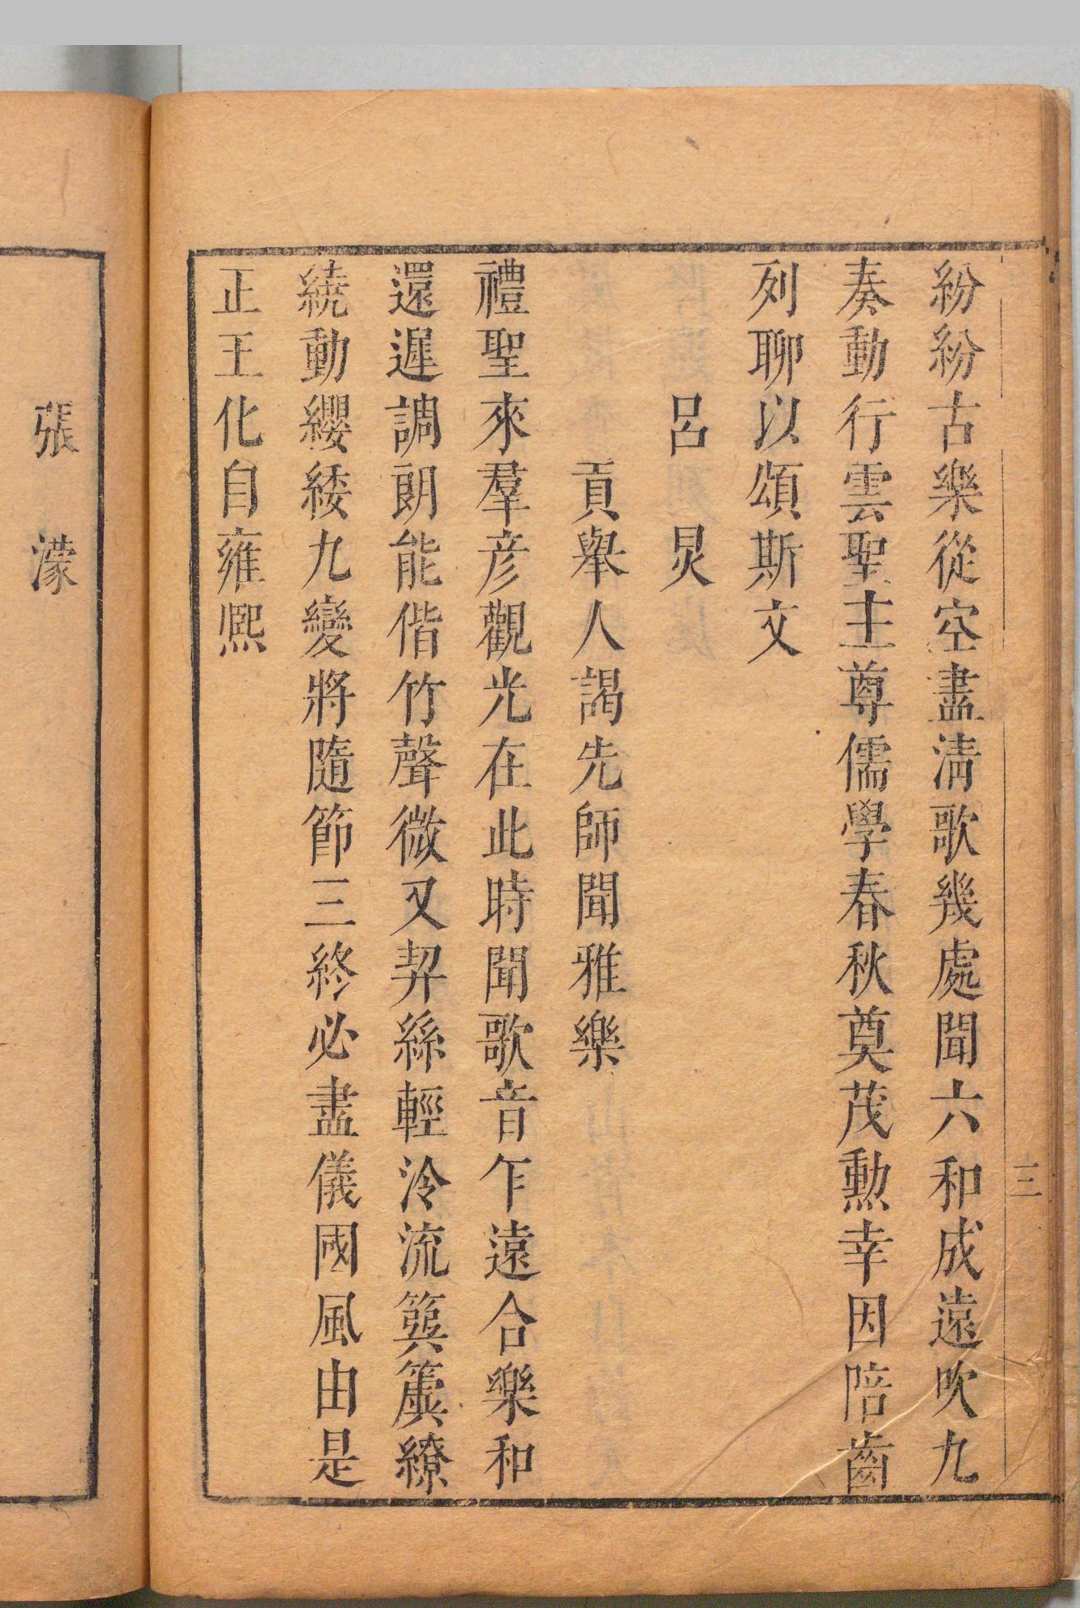 紛紛古樂從空盡淸歌幾處聞六和成遠吹九
奏動行雲聖主尊儒學春秋奠茂勳幸因陪齒
列聊以頌斯文
呂炅
貢舉人謁先師聞雅樂
禮聖來羣彥觀光在此時聞歌音乍遠合樂和
還遲調朗能偕竹聲微又契絲輕泠流簨簴繚
繞動纓緌九變將隨節三終必盡儀國風由是
正王化自雍熙
三
張濛